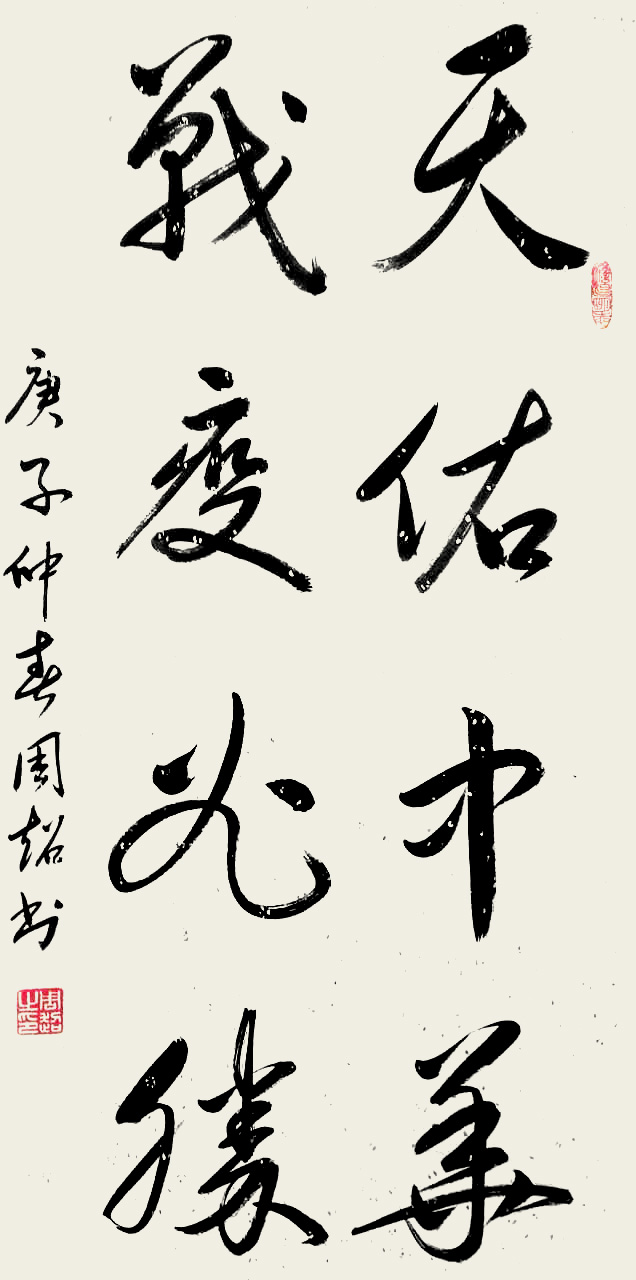 天佑中華
戰疫必勝
庚子仲春周超书